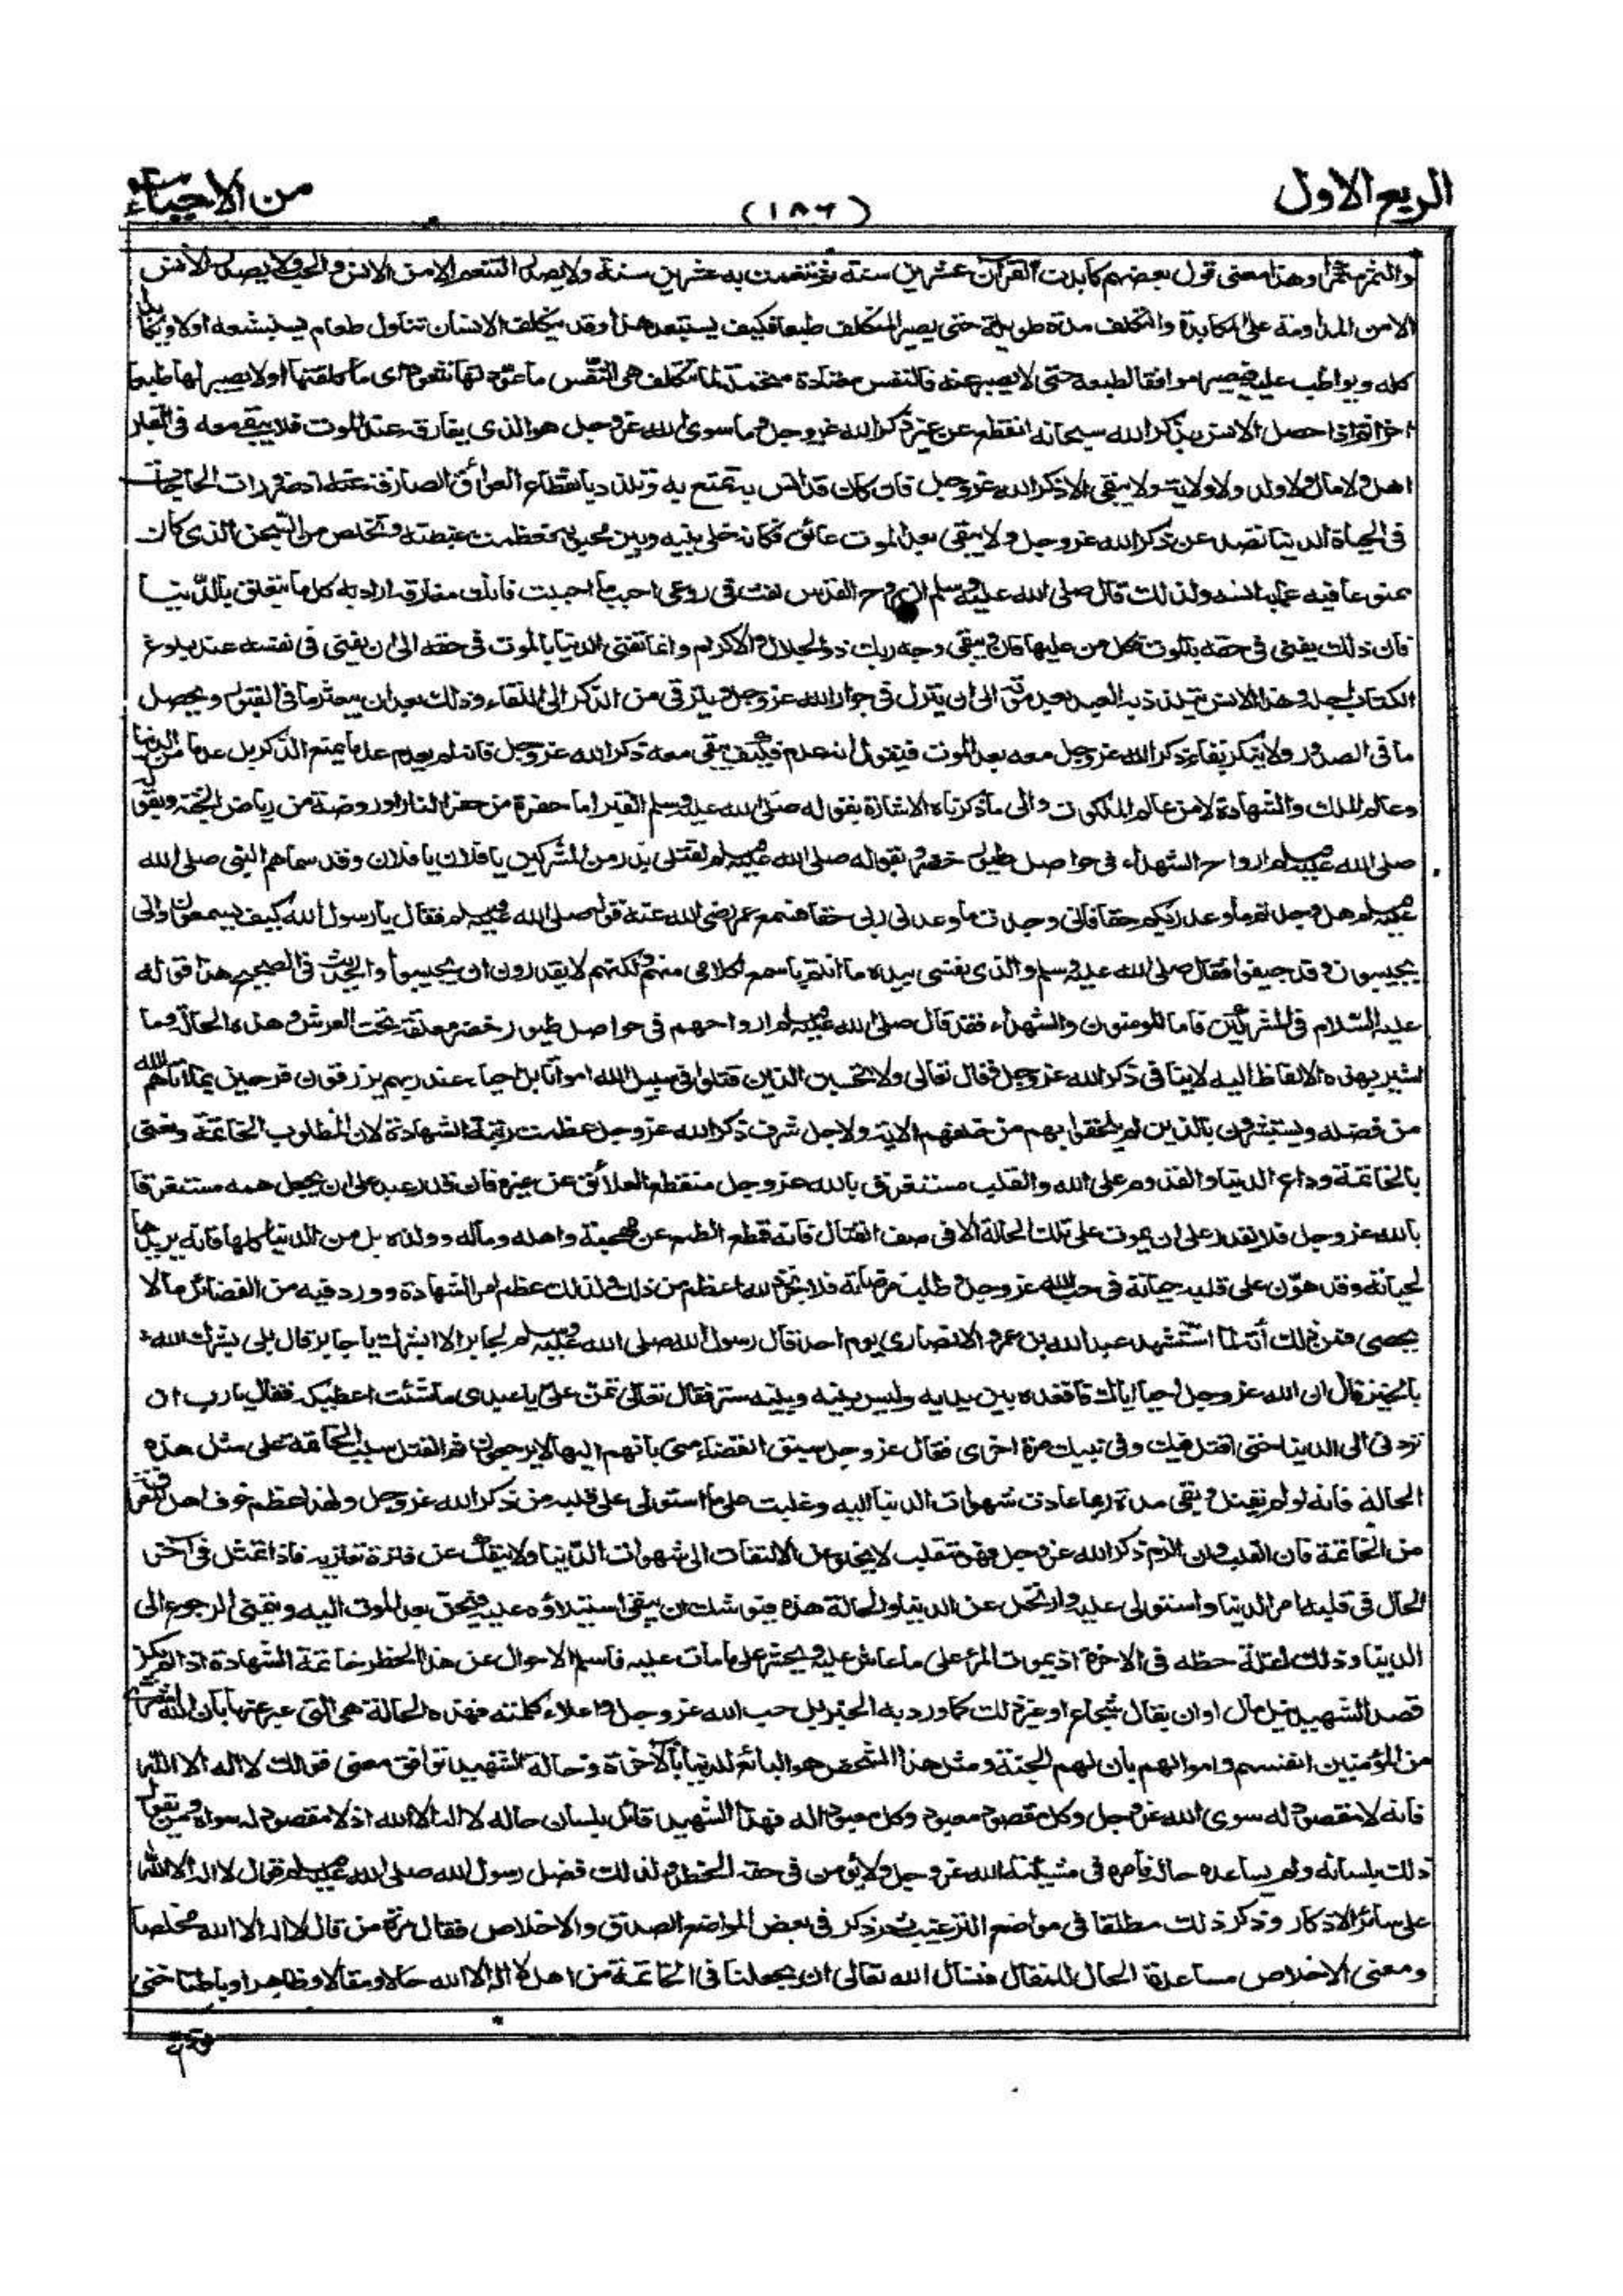 الربع الاول
(١٨٦)
من الاحياء
والثمر مثمرا وهذا معنى قول بعضهم كابدت القرآن عشرين سنة ثم تنعمت به عشرين سنة ولا يصدر التنعم الا من الانس والحب ولا يصدر الانس
الا من المداومة على المكابدة والتكلف مدة طويلة حتى يصير التكلف طبعا فكيف يستبعد هذا وقد يتكلف الانسان تناول طعام يستبشعه اولا ويكابد
اكله ويواظب عليه فيصير موافقا لطبعه حتى لا يصبر عنه فالنفس معتادة متحملة لما تتكلف هي النفس ما عودتها تتعود اى ما كلفتها اولا يصير لها طبعا
اخرا ثم اذا حصل الانس بذكر الله سبحانه انقطع عن غير ذكر الله عز وجل وما سوى الله عز وجل هو الذى يفارقه عند الموت فلا يبقى معه فى القبر
اهل ولا مال ولا ولد ولا ولاية ولا يبقى الا ذكر الله عز وجل فان كان قد انس به تمتع به وتلذذ بانقطاع العوائق الصارفة عنه اذ ضرورات الحاجات
فى الحياة الدنيا تصد عن ذكر الله عز وجل ولا يبقى بعد الموت عائق فكانه خلى بينه وبين محبوبه فعظمت غبطته وتخلص من السجن الذى كان
ممنوعا فيه عما به انسه ولذلك قال صلى الله عليه وسلم ان روح القدس نفث فى روعى احبب ما احببت فانك مفارقه اراد به كل ما يتعلق بالدنيا
فان ذلك يفنى فى حقه بالموت فكل من عليها فان ويبقى وجه ربك ذو الجلال والاكرام وانما تفنى الدنيا بالموت فى حقه الى ان تفنى فى نفسه عند بلوغ
الكتاب اجله وهذا الانس يتلذذ به العبد بعد موته الى ان ينزل فى جوار الله عز وجل ويترقى من الذكر الى اللقاء وذلك بعد ان يبعثر ما فى القبور ويحصل
ما فى الصدور ولا ينكر بقاء ذكر الله عز وجل معه بعد الموت فيقول انه عدم فكيف يبقى معه ذكر الله عز وجل فانه لم يعدم عدما يمنع الذكر بل عدما من الدنيا
وعالم الملك والشهادة لا من عالم الملكوت والى ما ذكرناه الاشارة بقوله صلى الله عليه وسلم القبر اما حفرة من حفر النار او روضة من رياض الجنة وبقوله
صلى الله عليه وسلم ارواح الشهداء فى حواصل طيور خضر وبقوله صلى الله عليه وسلم لقتلى بدر من المشركين يا فلان يا فلان وقد سماهم النبى صلى الله
عليه وسلم هل وجدتم ما وعد ربكم حقا فانى وجدت ما وعدنى ربى حقا فسمع عمر رضى الله عنه قوله صلى الله عليه وسلم فقال يا رسول الله كيف يسمعون وانى
يجيبون وقد جيفوا فقال صلى الله عليه وسلم والذى نفسى بيده ما انتم باسمع لكلامى منهم ولكنهم لا يقدرون ان يجيبوا والحديث فى الصحيح هذا قوله
عليه السلام فى المشركين فاما المومنون والشهداء فقد قال صلى الله عليه وسلم ارواحهم فى حواصل طيور خضر معلقة تحت العرش وهذه الحالة وما
اشير بهذه الالفاظ اليه لا ينافى ذكر الله عز وجل فقال تعالى ولا تحسبن الذين قتلوا فى سبيل الله امواتا بل احياء عند ربهم يرزقون فرحين بما اتاهم الله
من فضله ويستبشرون بالذين لم يلحقوا بهم من خلفهم الاية ولاجل شرف ذكر الله عز وجل عظمت رتبة الشهادة لان المطلوب الخاتمة ونعنى
بالخاتمة وداع الدنيا والقدوم على الله والقلب مستغرق بالله عز وجل منقطع العلائق عن غيره فان قدر عبد على ان يجعل همه مستغرقا
بالله عز وجل فلا يقدر على ان يموت على تلك الحالة الا فى صف القتال فانه قطع الطمع عن مهجته واهله وماله وولده بل من الدنيا كلها فانه يريدها
لحياته وقد هون على قلبه حياته فى حب الله عز وجل وطلب مرضاته فلا تجرد لله اعظم من ذلك ولذلك عظم امر الشهادة وورد فيه من الفضائل ما لا
يحصى فمن ذلك أنه لما استشهد عبد الله بن عمرو الانصارى يوم احد قال رسول الله صلى الله عليه وسلم لجابر الا ابشرك يا جابر قال بلى بشرك الله
بالخير قال ان الله عز وجل احيا اباك فاقعده بين يديه وليس بينه وبينه ستر فقال تعالى تمن على يا عبدى ما شئت اعطيكه فقال يا رب ان
تردنى الى الدنيا حتى اقتل فيك وفى نبيك مرة اخرى فقال عز وجل سبق القضاء منى بانهم اليها لا يرجعون ثم القتل سبب الخاتمة على مثل هذه
الحالة فانه لو لم يقتل وبقى مدة ربما عادت شهوات الدنيا اليه وغلبت على ما استولى على قلبه من ذكر الله عز وجل ولهذا عظم خوف اهل المعرفة
من الخاتمة فان القلب وان الزم ذكر الله عز وجل فهو متقلب لا يخلو عن الالتفات الى شهوات الدنيا ولا ينفك عن فترة تعتريه فاذا تمثل فى آخر
الحال فى قلبه امر الدنيا واستولى عليه وارتحل عن الدنيا والحالة هذه فيوشك ان يبقى استيلاؤه عليه فيحن بعد الموت اليه ويتمنى الرجوع الى
الدنيا وذلك لقلة حظه فى الاخرة اذ يموت المرء على ما عاش عليه ويحشر على ما مات عليه فاسلم الاحوال عن هذا الخطر خاتمة الشهادة اذا لم يكن
قصد الشهيد نيل مال او ان يقال شجاع او غير ذلك كما ورد به الخبر بل حب الله عز وجل واعلاء كلمته فهذه الحالة هى التى عبر عنها بان الله اشترى
من المؤمنين انفسهم واموالهم بان لهم الجنة ومثل هذا الشخص هو البائع للدنيا بالآخرة وحالة الشهيد توافق معنى قولك لا اله الا الله
فانه لا مقصود له سوى الله عز وجل وكل مقصود معبود وكل معبود اله فهذا الشهيد قائل بلسان حاله لا اله الا الله اذ لا مقصود له سواه ومن يقول
ذلك بلسانه ولم يساعده حاله فامره فى مشيئة الله عز وجل ولا يؤمن فى حقه الخطر ولذلك فضل رسول الله صلى الله عليه وسلم قول لا اله الا الله
على سائر الاذكار وذكر ذلك مطلقا فى مواضع الترغيب ثم ذكر فى بعض المواضع الصدق والاخلاص فقال مرة من قال لا اله الا الله مخلصا
ومعنى الاخلاص مساعدة الحال للمقال فنسأل الله تعالى ان يجعلنا فى الخاتمة من اهل لا اله الا الله حالا ومقالا وظاهرا وباطنا حتى